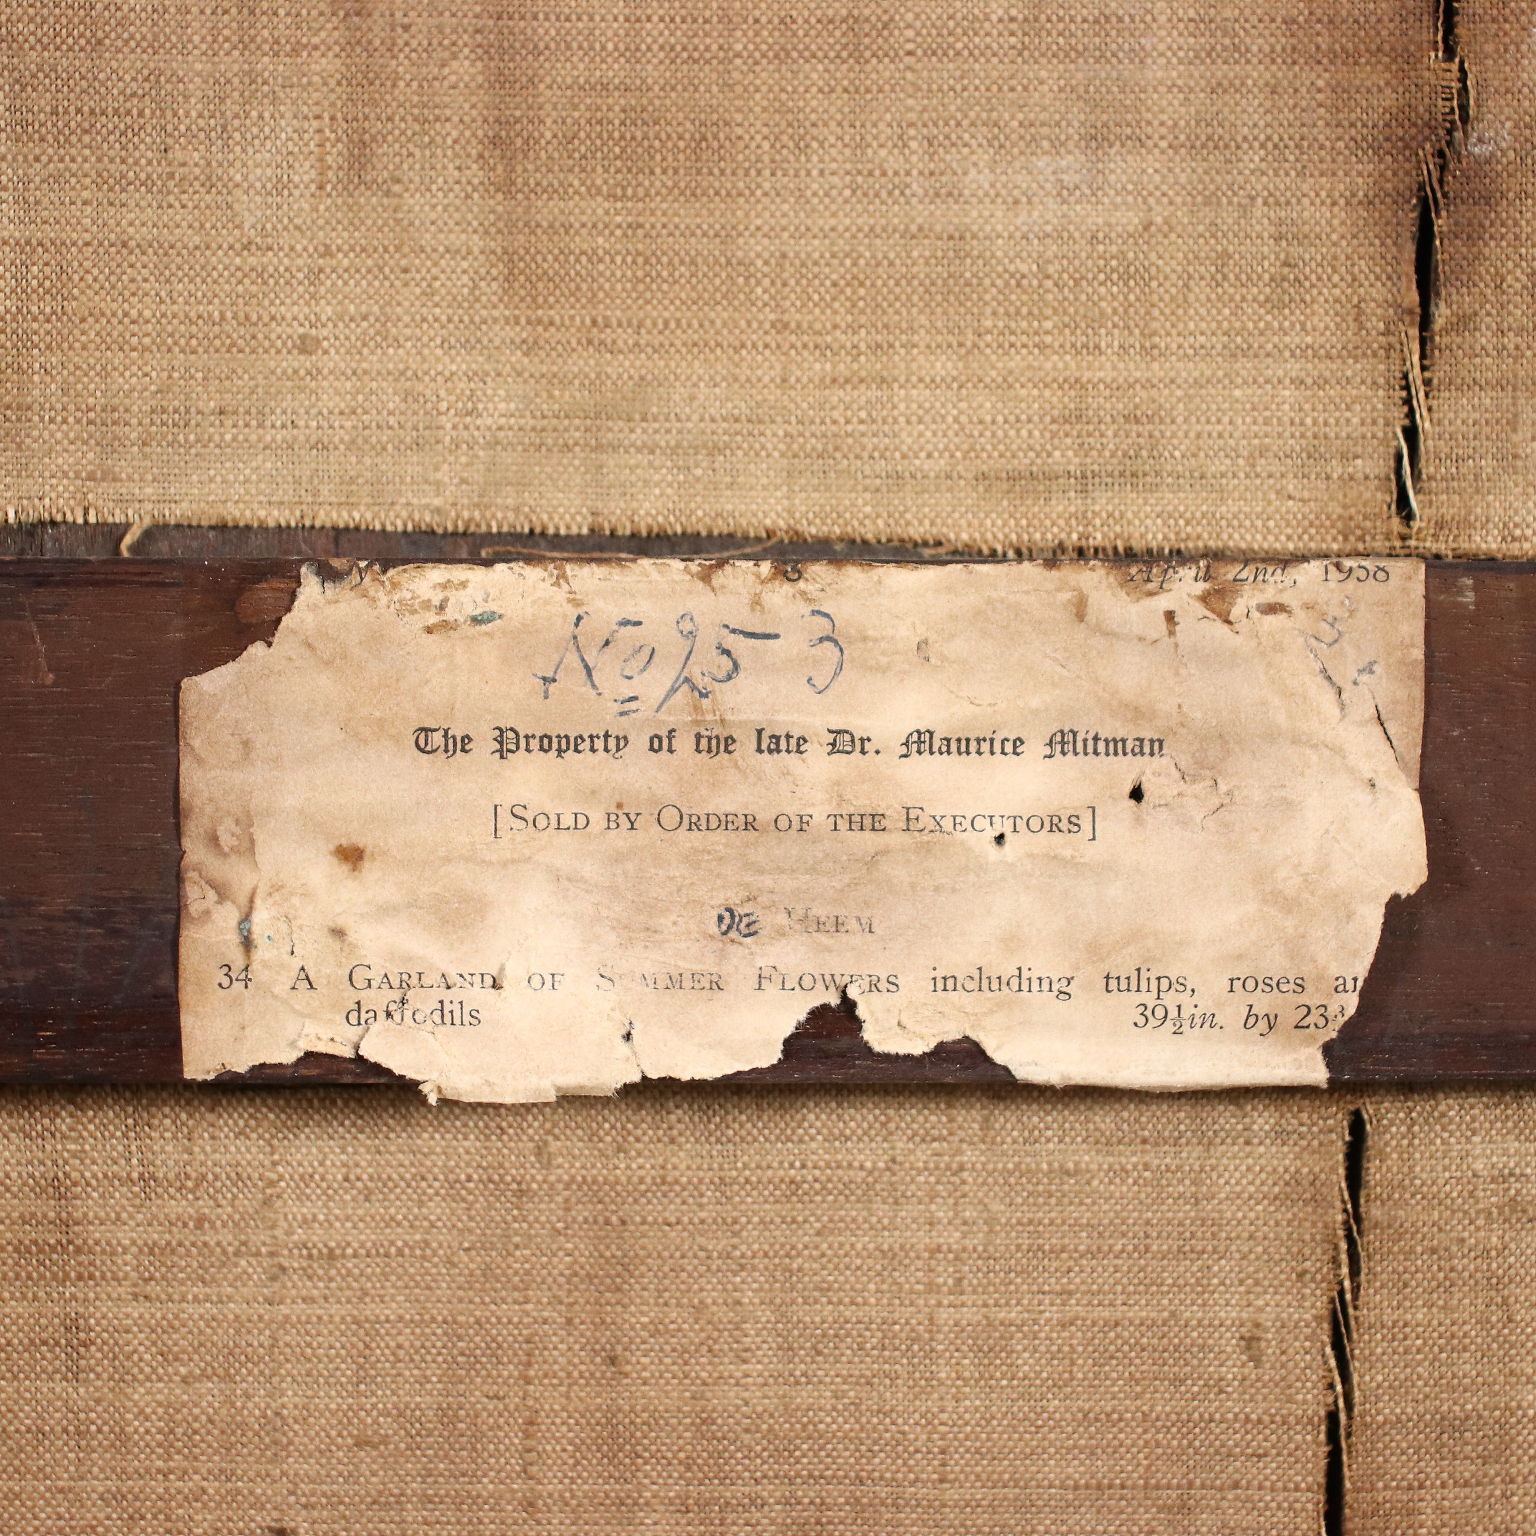 3 April 2nd, 1958
No 253
The Property of the late Dr. Maurice Mitman
[SOLD BY ORDER OF THE EXECUTORS]
DE HEEM
34 A GARLAND OF SUMMER FLOWERS including tulips, roses an
daffodils 39½in. by 23¾